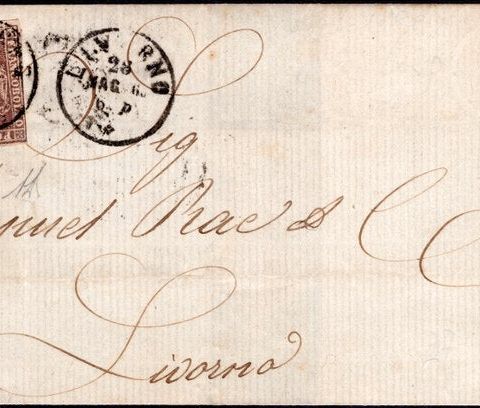 LIVORNO
28
MAG 6
6 P
Sig
nuel Rae & C
Livorno